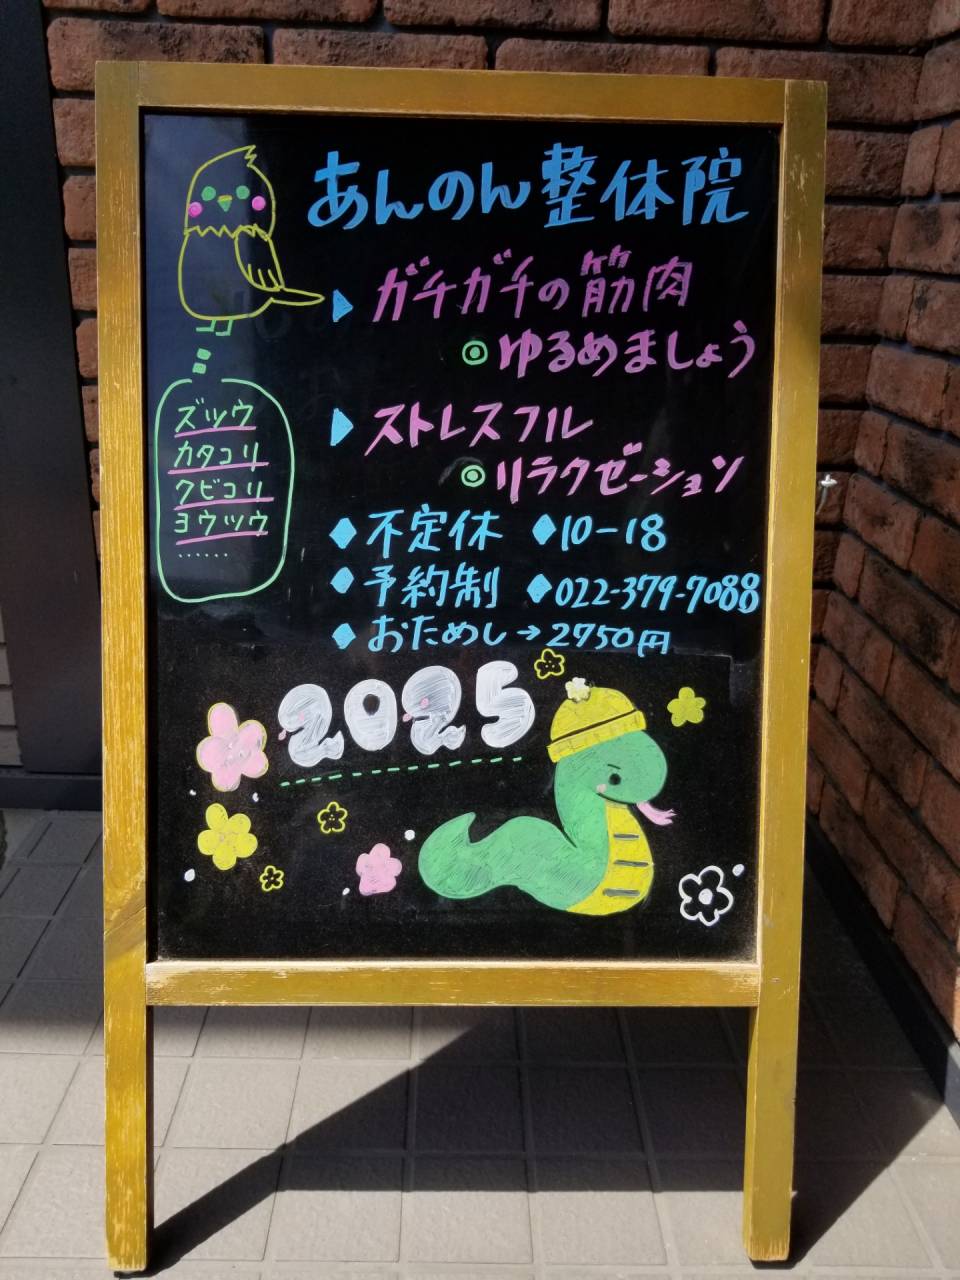 あんのん整体院
ガチガチの筋肉
ゆるめましょう
ストレスフル
リラクゼーション
ズツウ
カタコリ
クビコリ
ヨウツウ
……
不定休 10-18
予約制 022-379-7088
おためし→2750円
2025